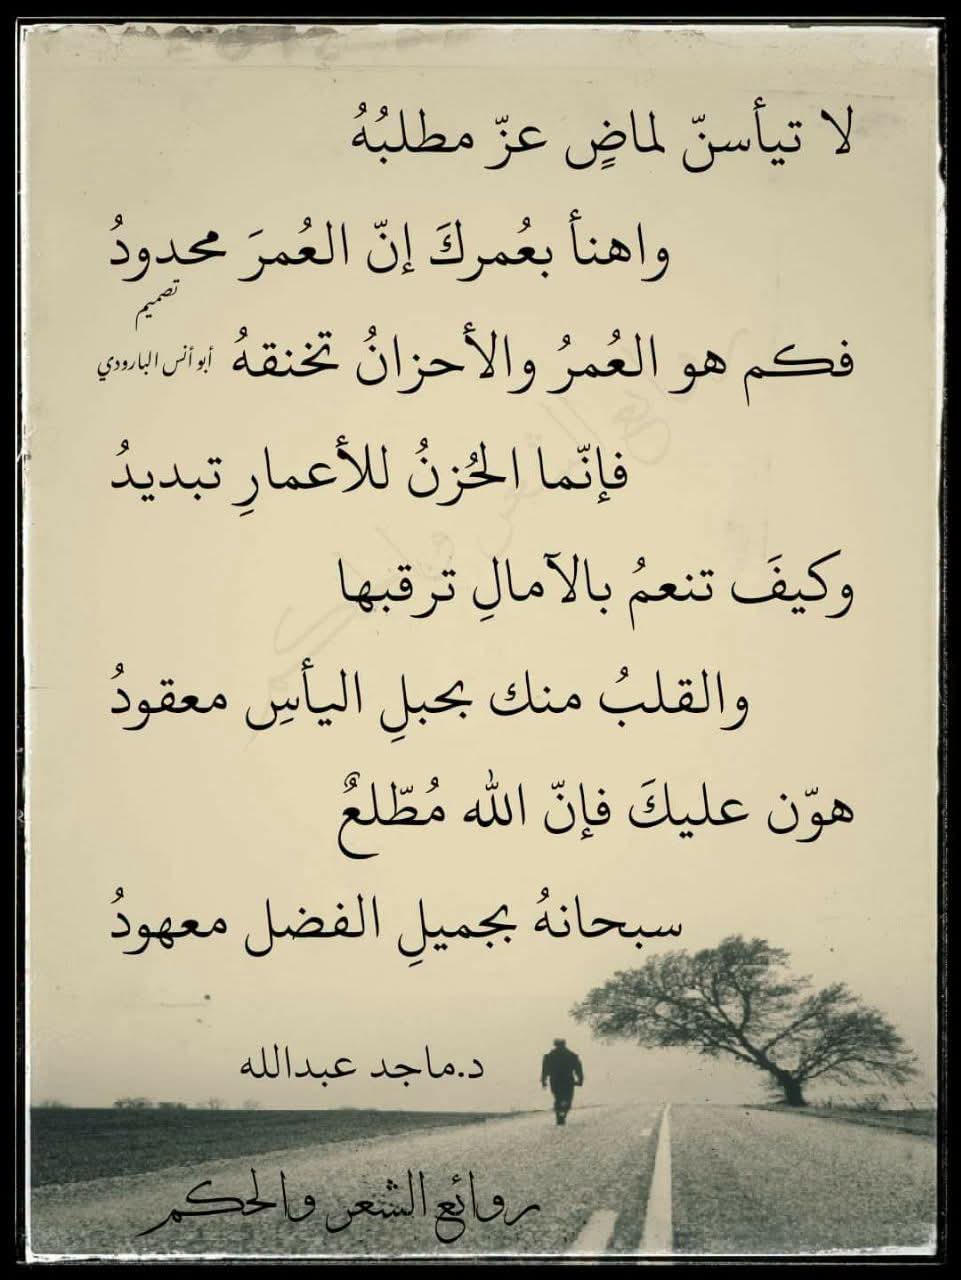 لا تيأسنّ لماضٍ عزّ مطلبُهُ
واهنأ بعُمركَ إنّ العُمرَ محدودُ
تصميم
أبو أنس البارودي
فكم هو العُمرُ والأحزانُ تخنقهُ
فإنّما الحُزنُ للأعمارِ تبديدُ
وكيفَ تنعمُ بالآمالِ ترقبها
والقلبُ منك بحبلِ اليأسِ معقودُ
هوّن عليكَ فإنّ الله مُطّلعٌ
سبحانهُ بجميلِ الفضل معهودُ
د.ماجد عبدالله
روائع الشعر والحكم